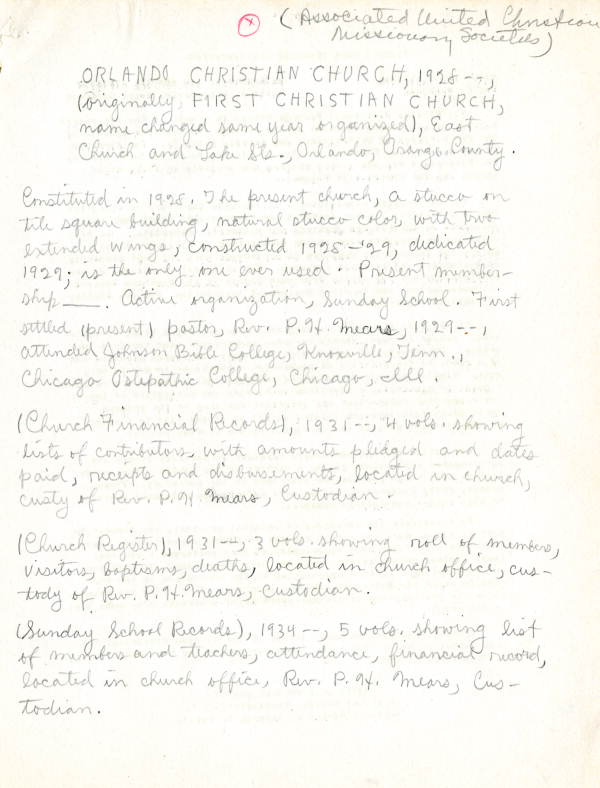 x
(Associated United Christian
Missionary Societies)
ORLANDO CHRISTIAN CHURCH, 1928--,
(originally FIRST CHRISTIAN CHURCH,
name changed same year organized), East
Church and Lake Sts., Orlando, Orange County.
Constituted in 1928. The present church, a stucco on
tile square building, natural stucco color, with two
extended wings, constructed 1928-'29, dedicated
1929; is the only one ever used. Present member-
ship ___. Active organization, Sunday School. First
settled (present) pastor, Rev. P.H. Mears, 1929--,
attended Johnson Bible College, Knoxville, Tenn.,
Chicago Ostepathic College, Chicago, Ill.
(Church Financial Records), 1931--, 4 vols. showing
lists of contributors with amounts pledged and dates
paid, receipts and disbursements, located in church,
custy of Rev. P.H. Mears, Custodian.
(Church Register), 1931--, 3 vols. showing roll of members,
visitors, baptisms, deaths, located in church office, cus-
tody of Rev. P.H. Mears, Custodian.
(Sunday School Records), 1934--, 5 vols. showing list
of members and teachers, attendance, financial record,
located in church office, Rev. P.H. Mears, Cus-
todian.